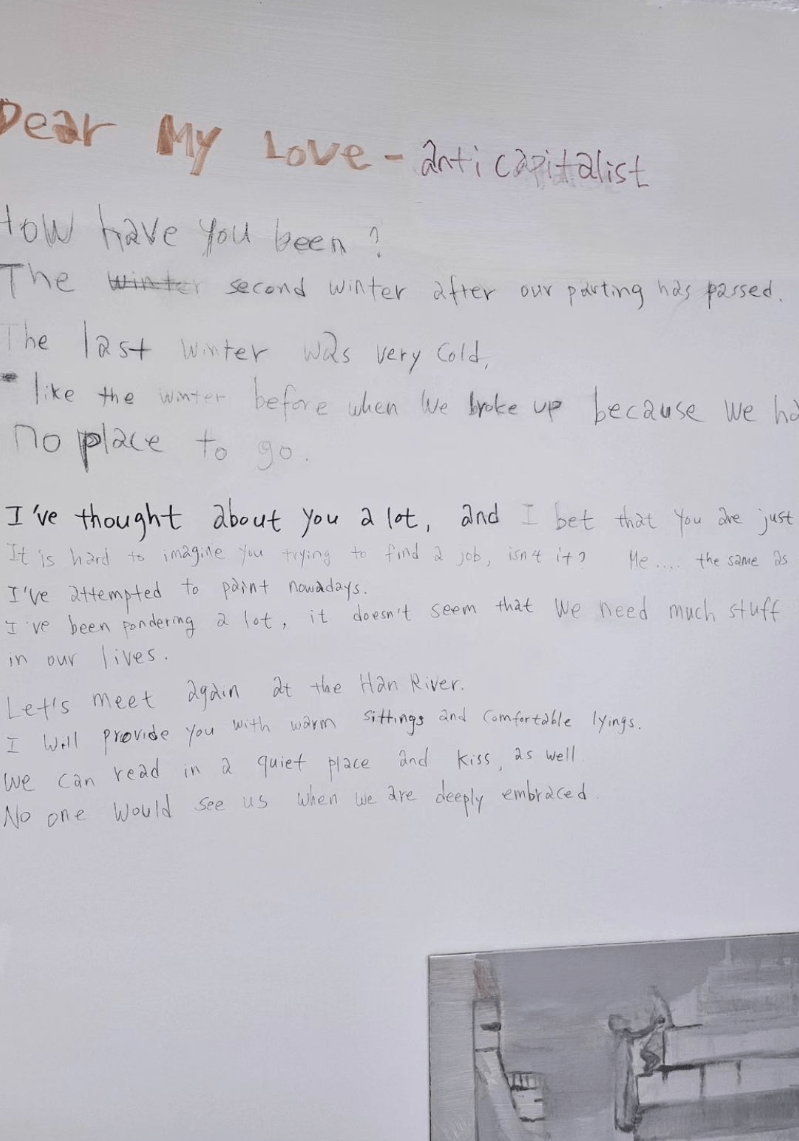 Dear My Love - anti capitalist
How have you been?
The winter second winter after our parting has passed.
The last winter was very cold,
like the winter before when we broke up because we ha
no place to go.
I've thought about you a lot, and I bet that you are just
It is hard to imagine you trying to find a job, isn't it? Me.... the same as
I've attempted to paint nowadays.
I've been pondering a lot, it doesn't seem that we need much stuff
in our lives.
Let's meet again at the Han River.
I will provide you with warm sittings and comfortable lyings.
We can read in a quiet place and kiss, as well
No one would see us when we are deeply embraced.